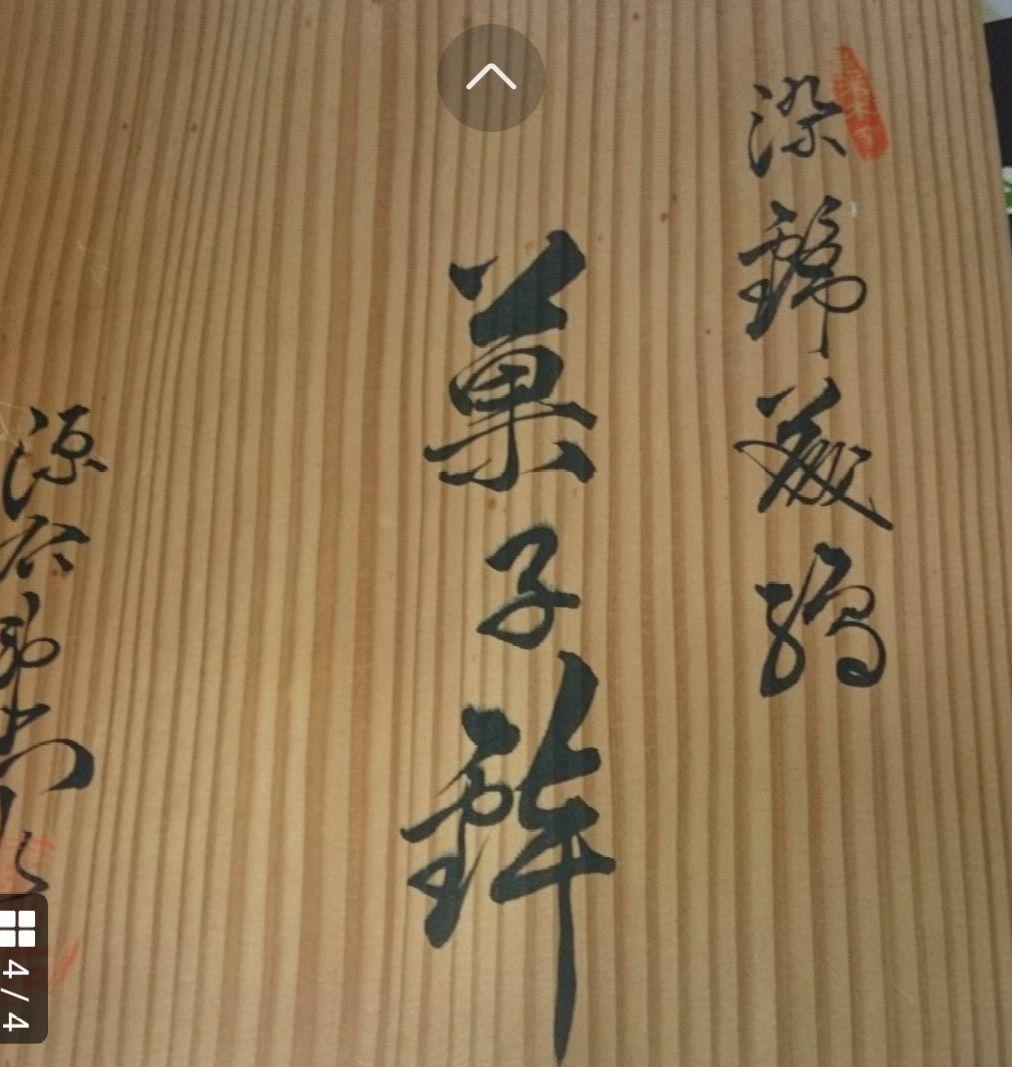 染錦
菓子鉢
源右衛門
4/4